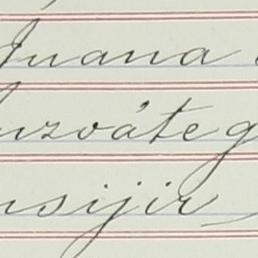 Juana
uzváteg
nsijir